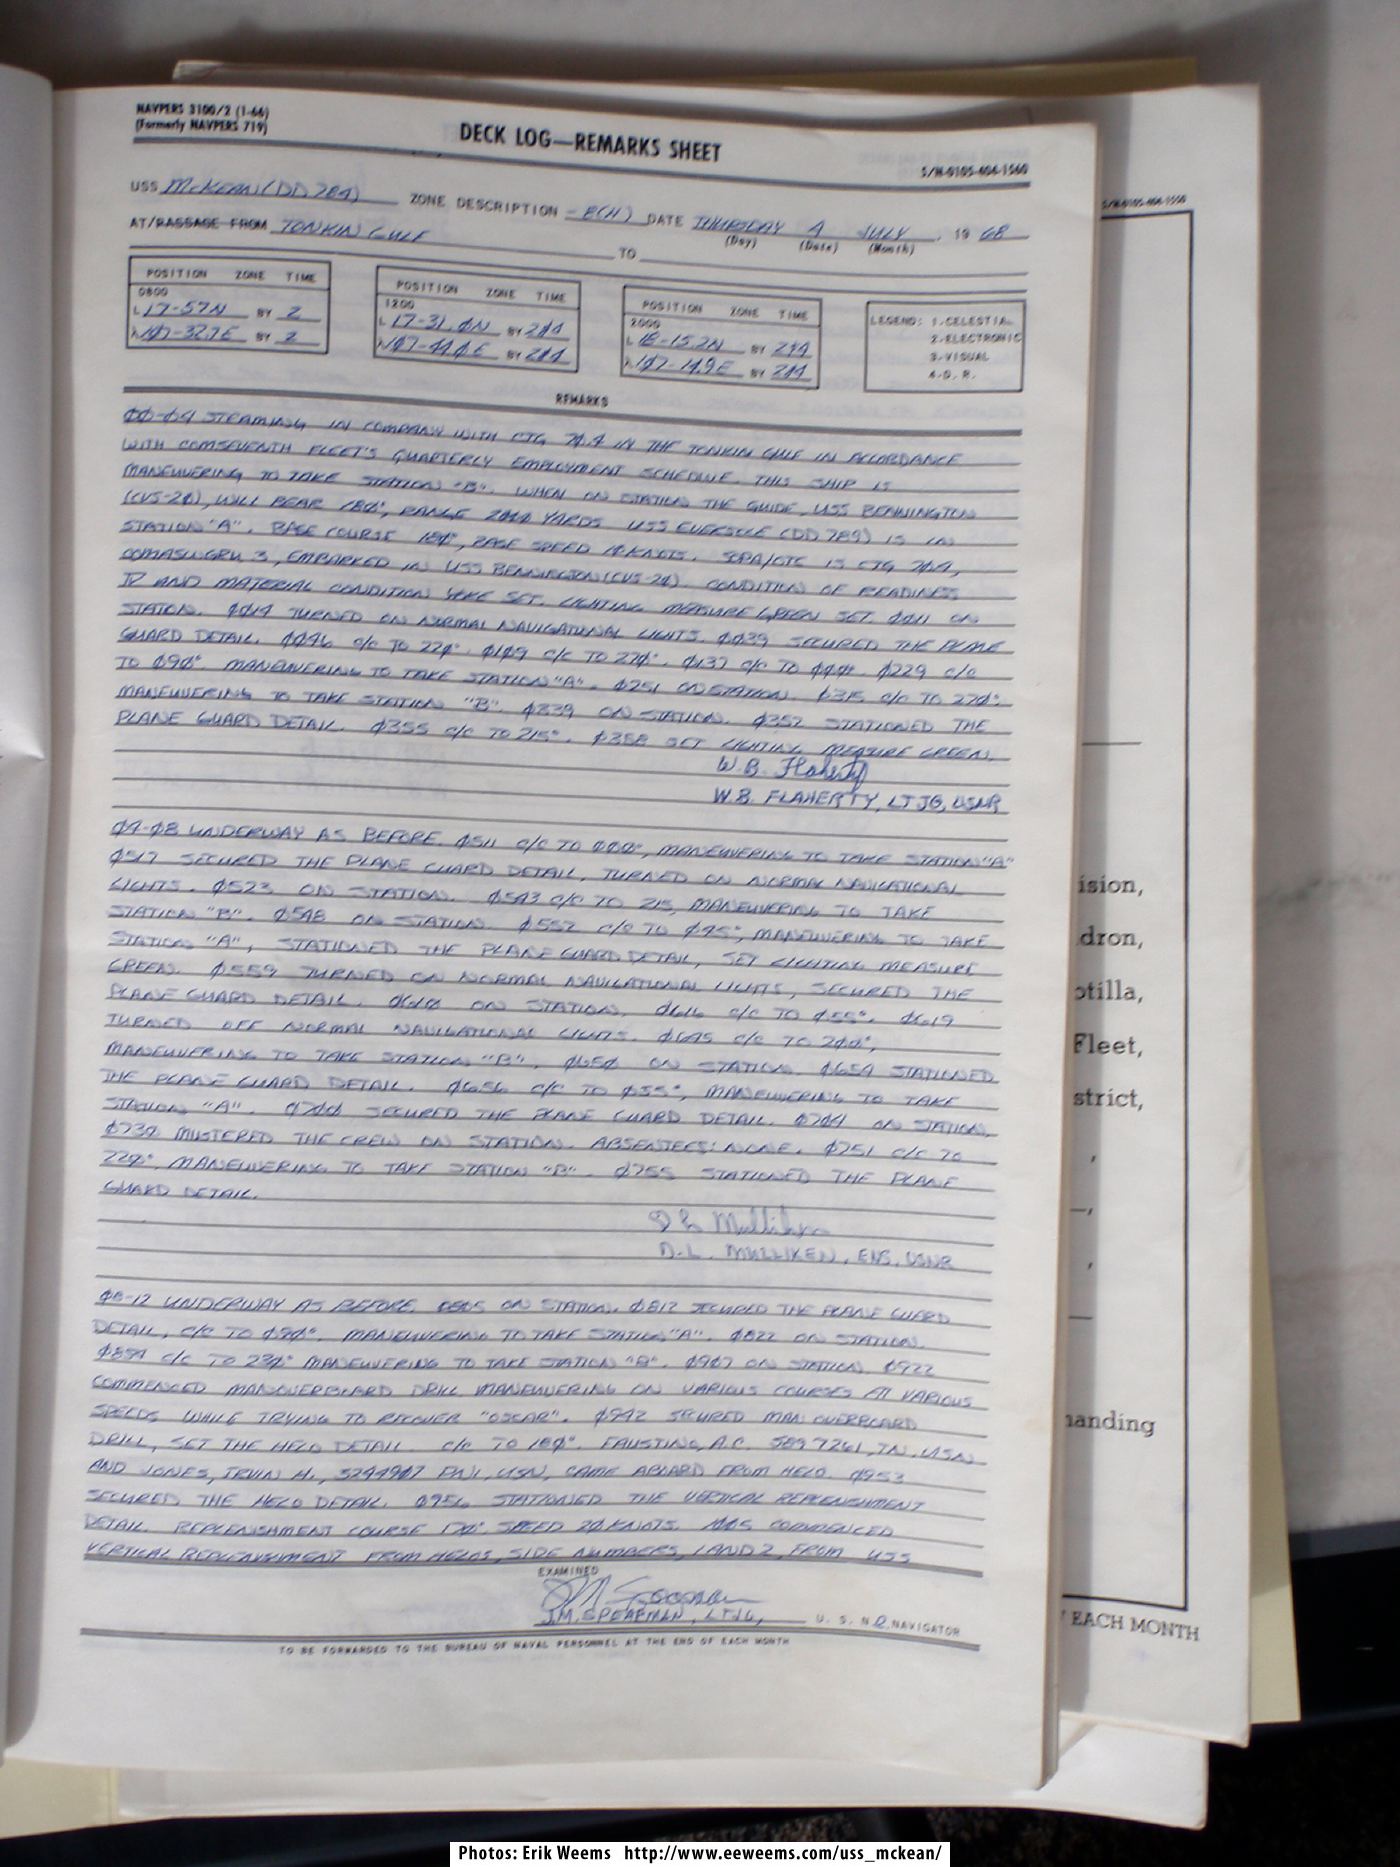 NAVPERS 3100/2 (1-66)
(Formerly NAVPERS 719)
DECK LOG—REMARKS SHEET
S/N-0105-404-1560
USS McKEAN (DD 784) ZONE DESCRIPTION -8(H) DATE THURSDAY 4 JULY, 19 68
(Day) (Date) (Month)
AT/PASSAGE FROM TONKIN GULF TO
POSITION ZONE TIME
0800
L 17-57N BY 2
λ 107-32.7E BY 2
POSITION ZONE TIME
1200
L 17-31.0N BY 2
λ 107-44.0E BY 2
POSITION ZONE TIME
2000
L 18-15.2N BY
λ 107-14.9E BY
LEGEND: 1-CELESTIAL
2-ELECTRONIC
3-VISUAL
4-D.R.
REMARKS
00-04 STEAMING IN COMPANY WITH CTG 70.4 IN THE TONKIN GULF IN ACCORDANCE
WITH COMSEVENTH FLEET'S QUARTERLY EMPLOYMENT SCHEDULE. THIS SHIP IS
MANEUVERING TO TAKE STATION "B". WHEN ON STATION THE GUIDE, USS BENNINGTON
(CVS-20), WILL BEAR 180°, RANGE 2000 YARDS. USS EVERSOLE (DD 789) IS IN
STATION "A". BASE COURSE 180°, BASE SPEED KNOTS. SOPA/OTC IS CTG 70.4,
COMASWGRU 3, EMBARKED IN USS BENNINGTON (CVS-20). CONDITION OF READINESS
IV AND MATERIAL CONDITION YOKE SET. LIGHTING MEASURE GREEN SET. 0011 ON
STATION. 0014 TURNED ON NORMAL NAVIGATIONAL LIGHTS. 0039 SECURED THE PLANE
GUARD DETAIL. 0046 c/c TO 220°. 0109 c/c TO 270°. 0137 c/c TO 000°. 0229 c/c
TO 090°. MANEUVERING TO TAKE STATION "A". 0251 ON STATION. 0315 c/c TO 270°.
MANEUVERING TO TAKE STATION "B". 0339 ON STATION. 0352 STATIONED THE
PLANE GUARD DETAIL. 0355 c/c TO 215°. 0358 SET LIGHTING MEASURE GREEN.
W.B. Flaherty
W.B. FLAHERTY, LTJG, USNR
04-08 UNDERWAY AS BEFORE. 0511 c/c TO 000°, MANEUVERING TO TAKE STATION "A"
0517 SECURED THE PLANE GUARD DETAIL, TURNED ON NORMAL NAVIGATIONAL
LIGHTS. 0523 ON STATION. 0543 c/c TO 215, MANEUVERING TO TAKE
STATION "B". 0548 ON STATION. 0552 c/c TO 045°, MANEUVERING TO TAKE
STATION "A", STATIONED THE PLANE GUARD DETAIL, SET LIGHTING MEASURE
GREEN. 0559 TURNED ON NORMAL NAVIGATIONAL LIGHTS, SECURED THE
PLANE GUARD DETAIL. 0610 ON STATION. 0616 c/c TO 055°. 0619
TURNED OFF NORMAL NAVIGATIONAL LIGHTS. 0645 c/c TO 200°,
MANEUVERING TO TAKE STATION "B". 0650 ON STATION. 0654 STATIONED
THE PLANE GUARD DETAIL. 0656 c/c TO 035°, MANEUVERING TO TAKE
STATION "A". 0700 SECURED THE PLANE GUARD DETAIL. 0704 ON STATION.
0730 MUSTERED THE CREW ON STATION. ABSENTEES: NONE. 0751 c/c TO
220°, MANEUVERING TO TAKE STATION "B". 0755 STATIONED THE PLANE
GUARD DETAIL.
D L Mulliken
D.L. MULLIKEN, ENS, USNR
08-12 UNDERWAY AS BEFORE. 0805 ON STATION. 0812 SECURED THE PLANE GUARD
DETAIL, c/c TO 090°. MANEUVERING TO TAKE STATION "A". 0822 ON STATION.
0854 c/c TO 230° MANEUVERING TO TAKE STATION "B". 0907 ON STATION. 0922
COMMENCED MANOVERBOARD DRILL MANEUVERING ON VARIOUS COURSES AT VARIOUS
SPEEDS WHILE TRYING TO RECOVER "OSCAR". 0942 SECURED MAN OVERBOARD
DRILL, SET THE HELO DETAIL. c/c TO 180°. FAUSTINO, A.C. 5897261, TN, USN
AND JONES, IRVIN H., 5244907 PN1, USN, CAME ABOARD FROM HELO. 0953
SECURED THE HELO DETAIL. 0956 STATIONED THE VERTICAL REPLENISHMENT
DETAIL. REPLENISHMENT COURSE 170° SPEED 20 KNOTS. 1005 COMMENCED
VERTICAL REPLENISHMENT FROM HELOS, SIDE NUMBERS, 1 AND 2, FROM USS
EXAMINED
J.M. SPEARMAN, LTJG, U. S. N R NAVIGATOR
TO BE FORWARDED TO THE BUREAU OF NAVAL PERSONNEL AT THE END OF EACH MONTH
S/N-0105-404-1550
ision,
dron,
otilla,
Fleet,
strict,
anding
EACH MONTH
Photos: Erik Weems http://www.eeweems.com/uss_mckean/